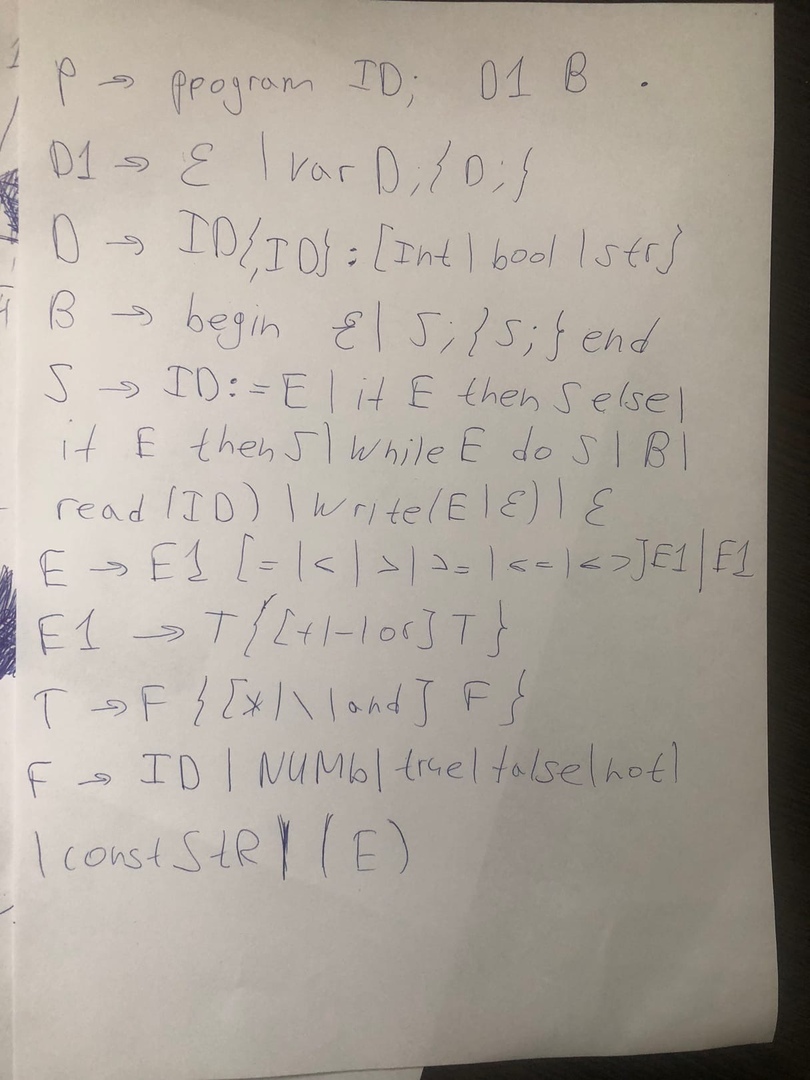 P → program ID; D1 B .
D1 → Ɛ | var D;{D;}
D → ID{,ID}:[Int| bool |str}
B → begin Ɛ| S;{S;} end
S → ID:=E | if E then S else|
if E then S| While E do S | B |
read (ID) | Write(E|Ɛ)| Ɛ
E → E1 [=|<|>|>=|<=|<>]E1|E1
E1 → T{[+|-|or] T}
T → F {[*|\|and] F}
F → ID | NUMb| true| false|not|
| const StR | (E)